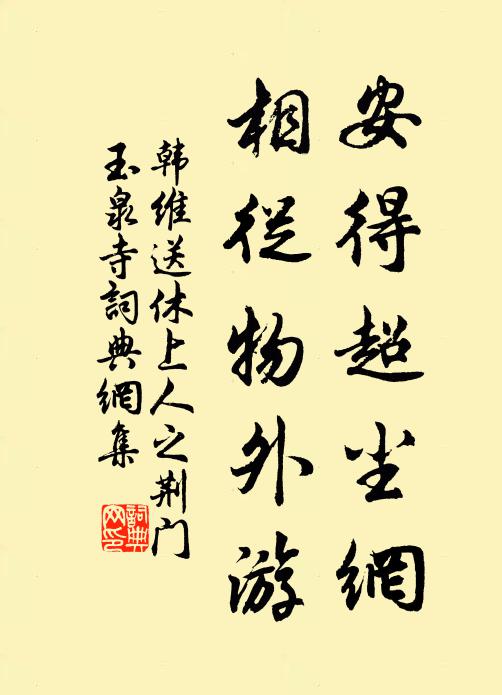 安得超尘網
相從物外游
韩维送休上人之荆门
玉泉寺詞典網集
詞典網印